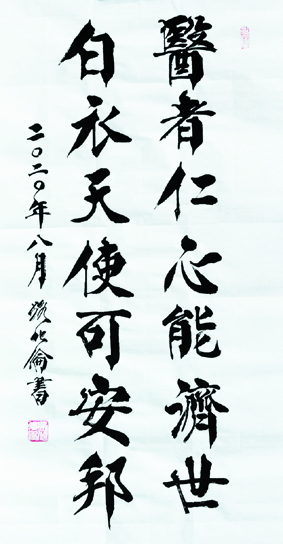 醫者仁心能濟世
白衣天使可安邦
二〇二〇年八月 化倫書